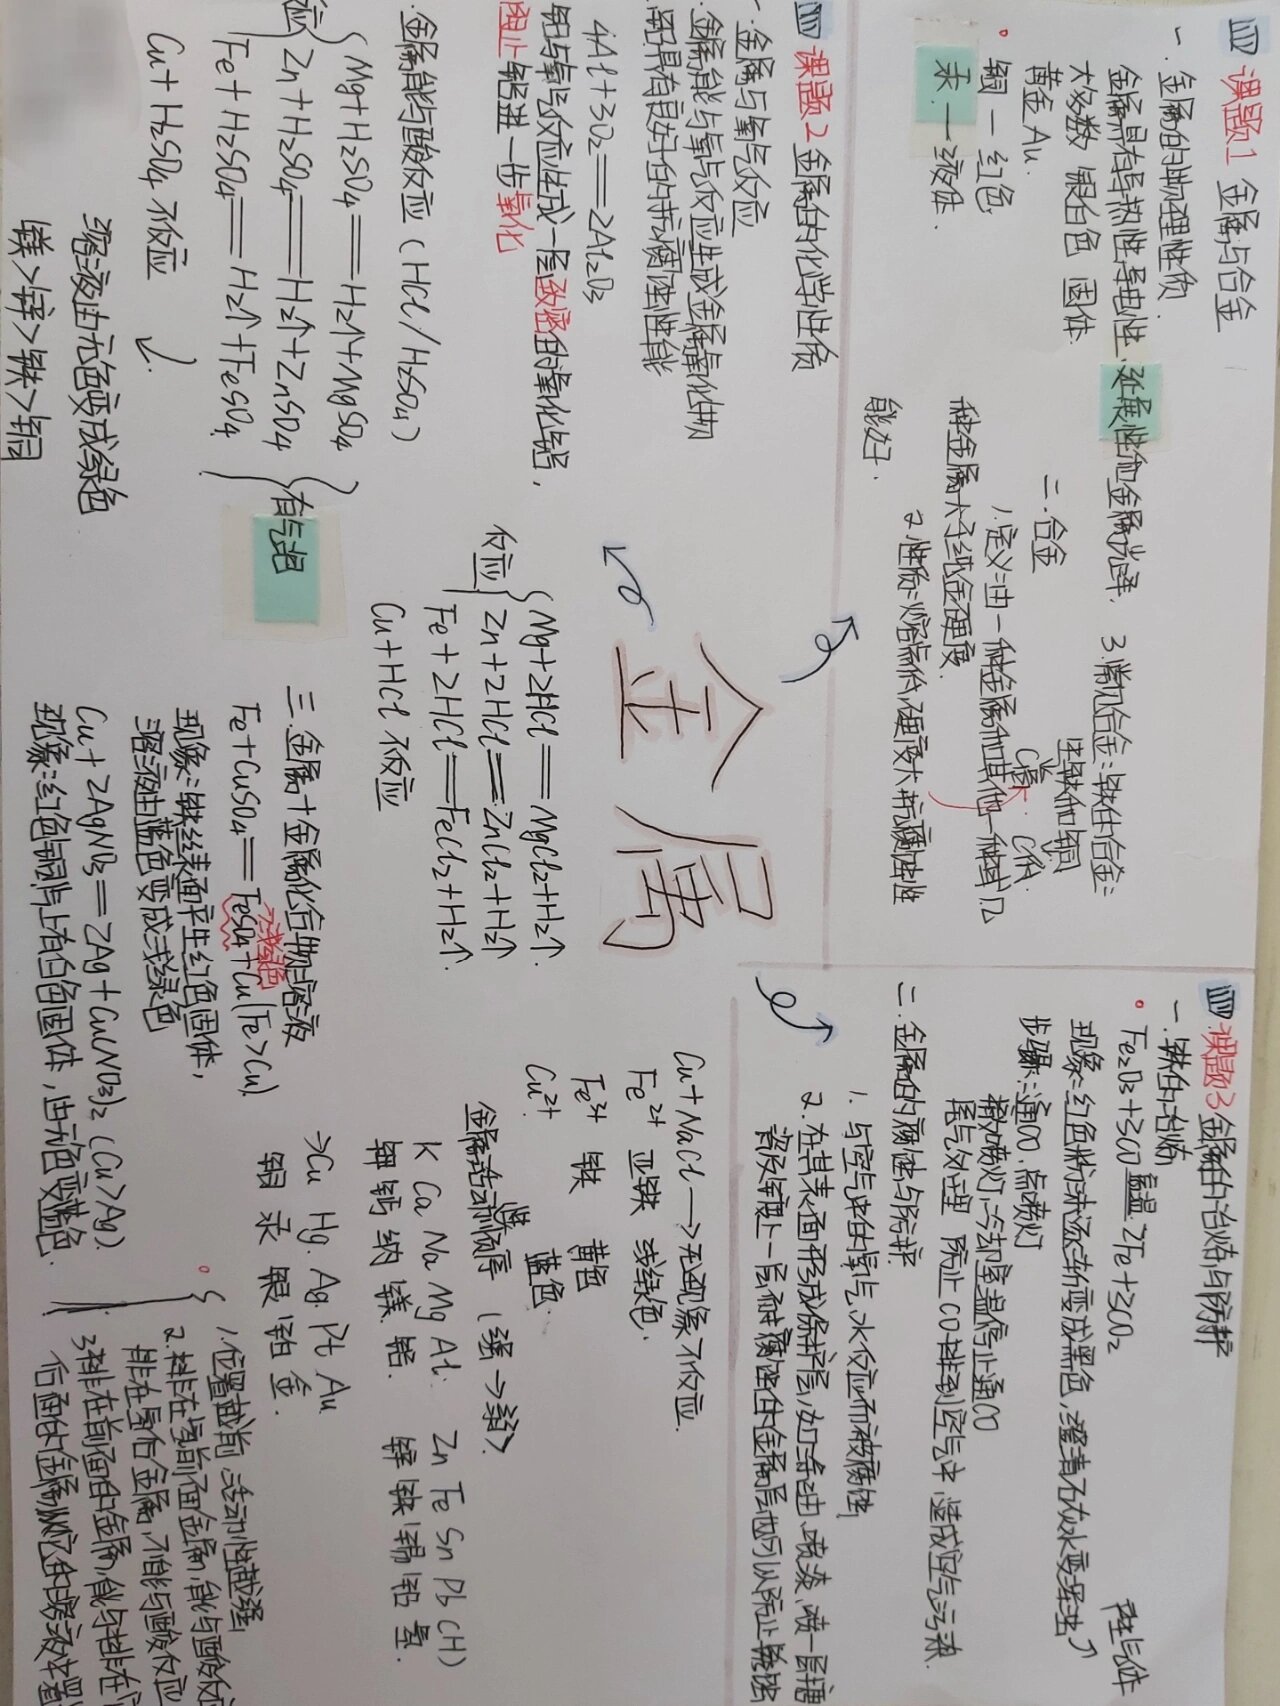 课题1 金属与合金
一.金属的物理性质.
金属具有导热性、导电性、延展性和金属光泽.
大多数 银白色 固体.
黄金 Au.
铜 — 红色
汞 — 液体.
二.合金
1.定义:由一种金属和其他一种或几
种金属
大于纯金硬度.
2.性质:熔点低、硬度大、抗腐蚀性
能好.
3.常见合金:铁的合金:
生铁和钢
C高 C低
课题2 金属的化学性质
一.金属与氧气反应
金属能与氧气反应生成金属氧化物
铝具有良好的抗腐蚀性能
4Al+3O₂══2Al₂O₃
铝与氧气反应生成一层致密的氧化铝,
阻止铝进一步氧化
金属能与酸反应(HCl/H₂SO₄)
Mg+H₂SO₄══H₂↑+MgSO₄
Zn+H₂SO₄══H₂↑+ZnSO₄
Fe+H₂SO₄══H₂↑+FeSO₄
Cu+H₂SO₄ 不反应
有气泡
溶液由无色变成绿色
镁>锌>铁>铜
金属
反应
Mg+2HCl══MgCl₂+H₂↑.
Zn+2HCl══ZnCl₂+H₂↑
Fe+2HCl══FeCl₂+H₂↑.
Cu+HCl 不反应
三.金属+金属化合物溶液
Fe+CuSO₄══FeSO₄+Cu(Fe>Cu)
浅绿色
现象:铁丝表面产生红色固体,
溶液由蓝色变成浅绿色
Cu+2AgNO₃══2Ag+Cu(NO₃)₂(Cu>Ag).
现象:红色铜片上有白色固体,由无色变蓝色.
Cu+NaCl→无现象不反应.
Fe²⁺ 亚铁 浅绿色.
Fe³⁺ 铁 黄色
Cu²⁺ 蓝色.
金属活动顺序(强→弱)
K Ca Na Mg Al. Zn Fe Sn Pb (H)
钾 钙 钠 镁 铝. 锌 铁 锡 铅 氢.
>Cu Hg. Ag. Pt Au
铜 汞 银 铂 金.
1.位置越前,活动性越强,
2.排在氢前面金属,能与酸反应
排在氢后金属,不能与酸反应
3.排在前面的金属,能与排在
后面的金属从它的溶液中置
课题3 金属的冶炼与防护
一.铁的冶炼
Fe₂O₃+3CO 高温 2Fe+3CO₂
现象:红色粉末逐渐变成黑色,澄清石灰水变浑浊,
产生气体
步骤:通CO.点喷灯
撤喷灯,冷却室温停止通CO
尾气处理 防止CO排到空气中,造成空气污染.
二.金属的腐蚀与防护
1.与空气中的氧气,水反应而被腐蚀,
2.在其表面形成保护层,如:涂油、喷漆,
镀上一层耐腐蚀的金属层